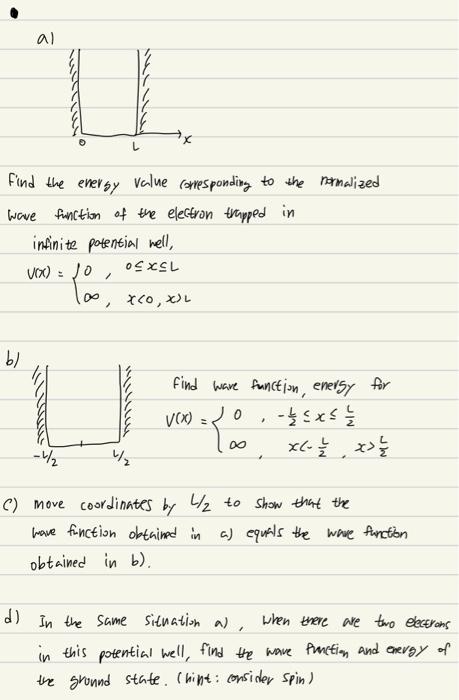 a)
0 L x
Find the energy value corresponding to the normalized
wave function of the electron trapped in
infinite potential well,
V(x) = { 0 , 0 ≤ x ≤ L
∞ , x < 0 , x > L
b)
-L/2 L/2
Find wave function, energy for
V(x) = { 0 , -L/2 ≤ x ≤ L/2
∞ , x < -L/2 , x > L/2
c) move coordinates by L/2 to show that the
wave function obtained in a) equals the wave function
obtained in b).
d) In the same situation a) , when there are two electrons
in this potential well, find the wave function and energy of
the ground state. (hint : consider spin)